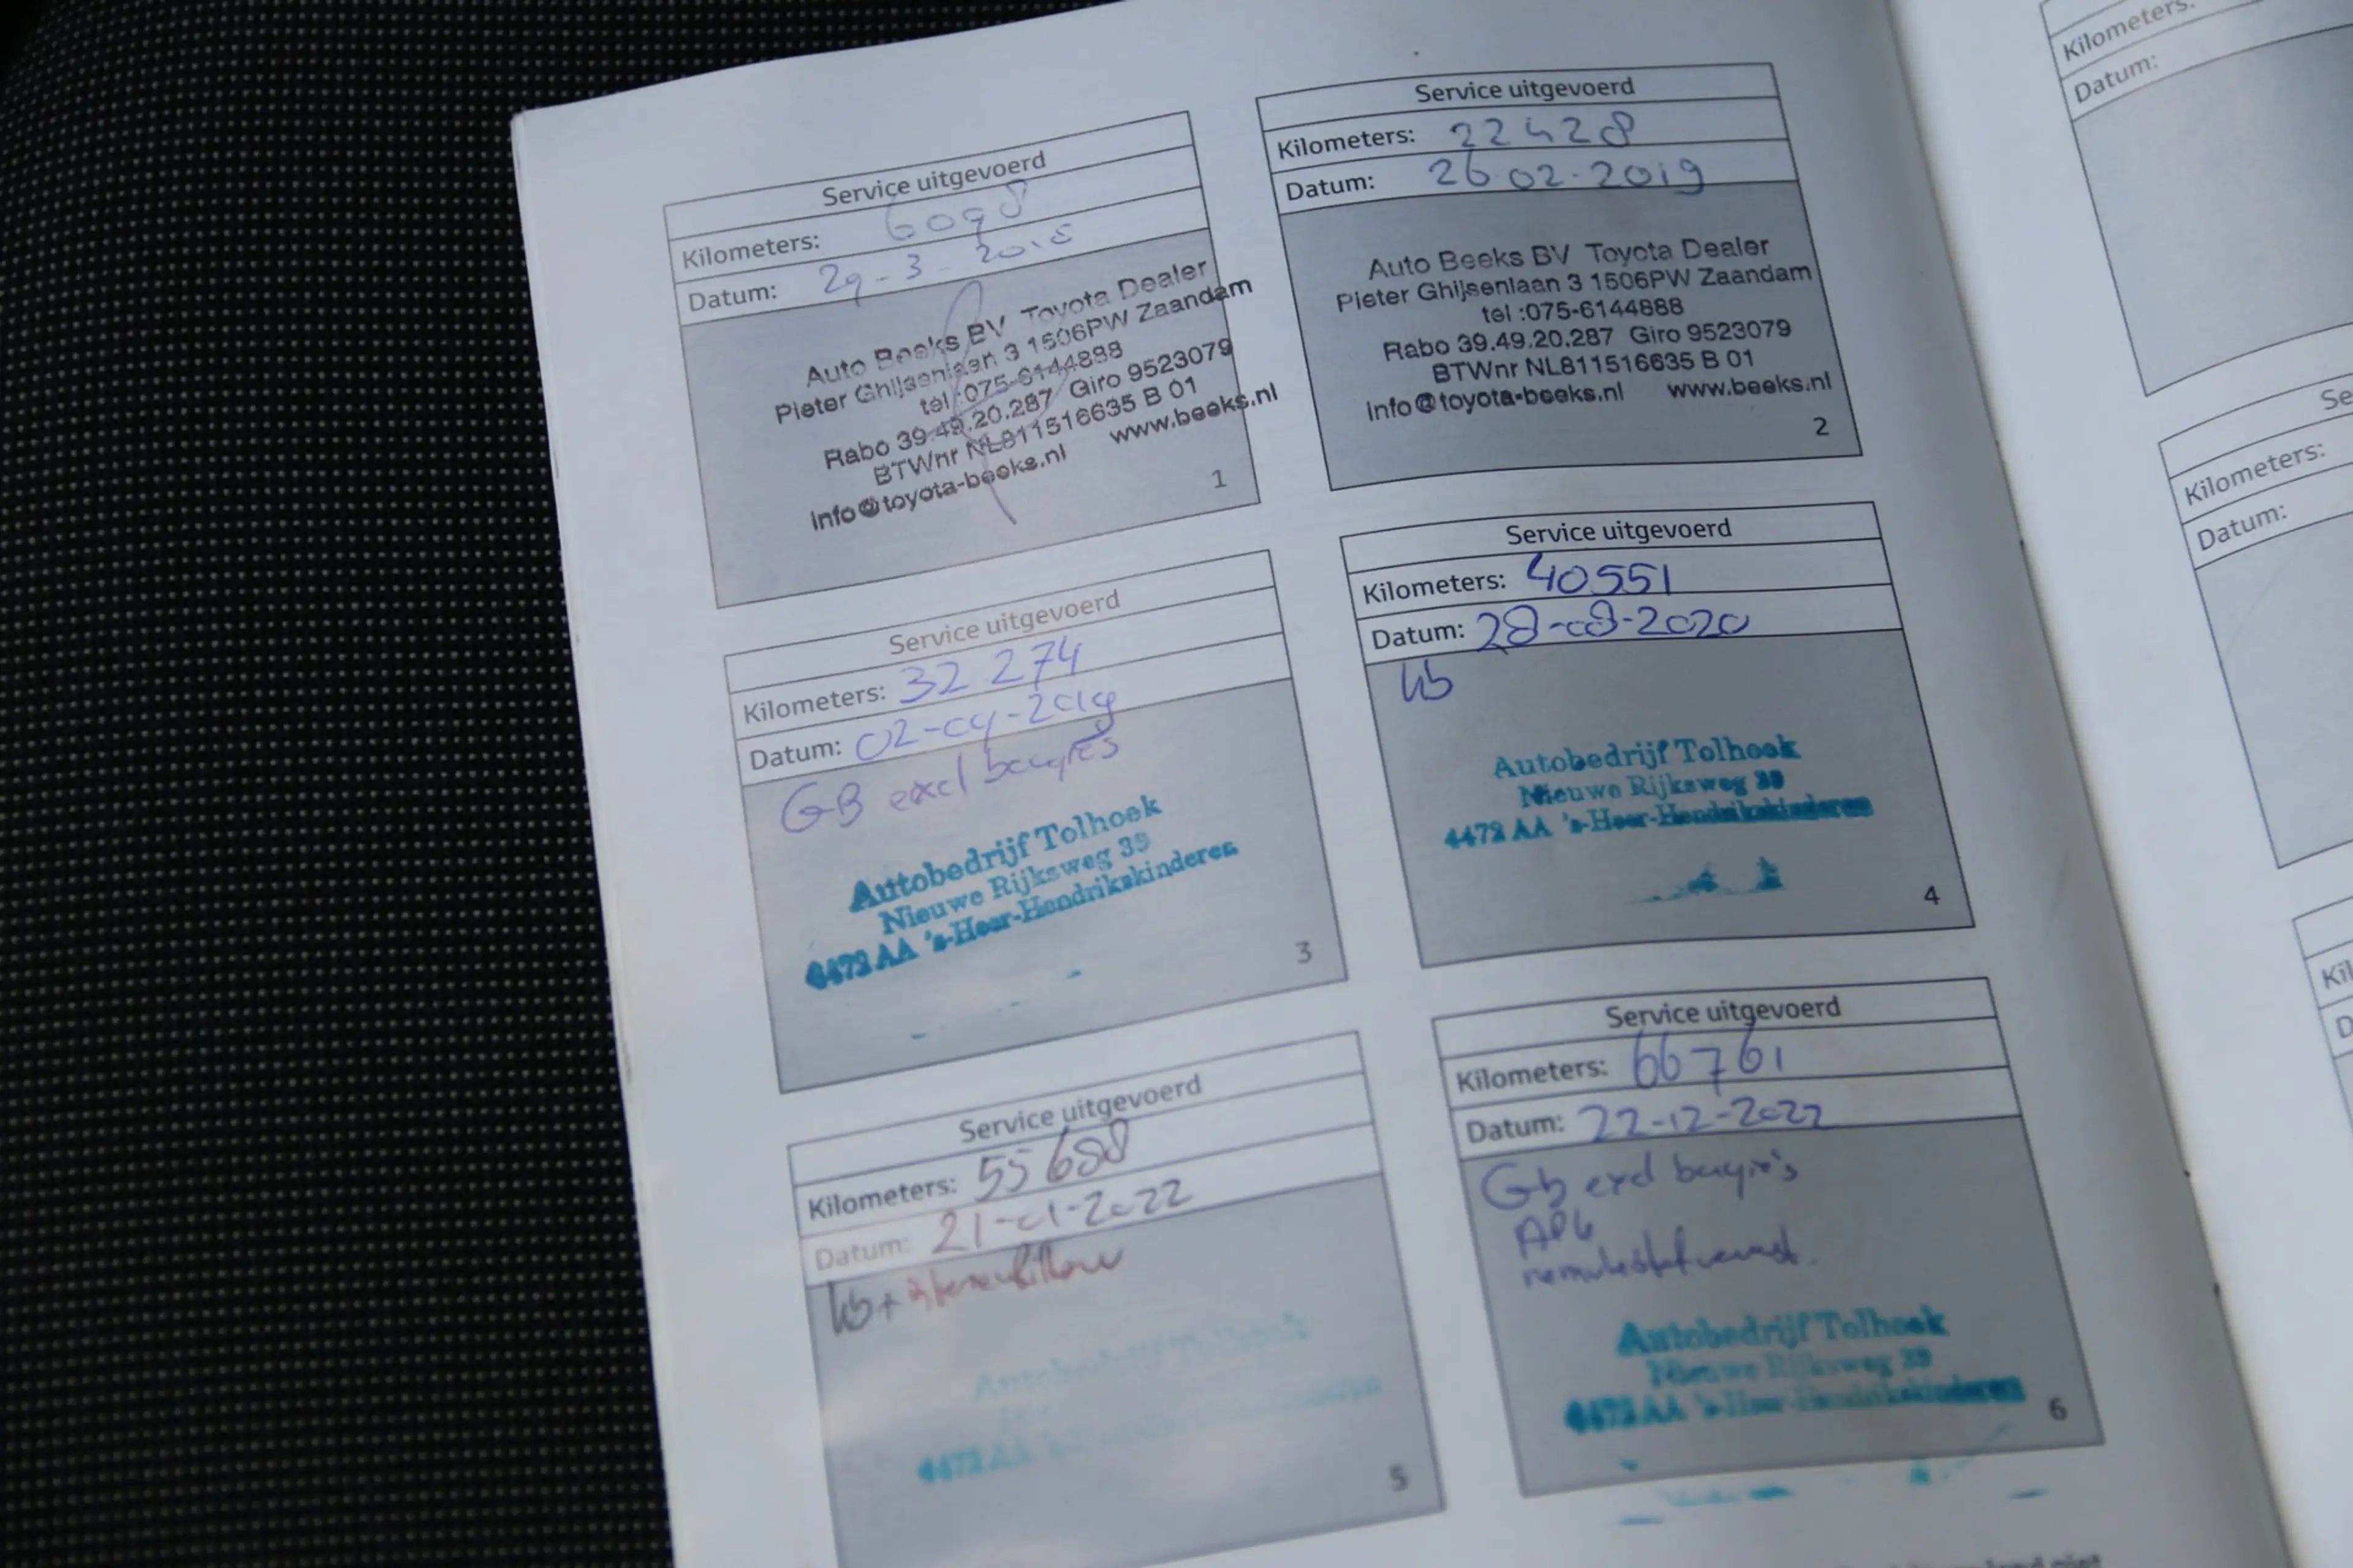 Service uitgevoerd
Kilometers: 6098
Datum: 29-3-2018
Auto Beeks BV Toyota Dealer
Pieter Ghijsenlaan 3 1506PW Zaandam
tel :075-6144888
Rabo 39.49.20.287 Giro 9523079
BTWnr NL811516635 B 01
info@toyota-beeks.nl www.beeks.nl
1
Service uitgevoerd
Kilometers: 22428
Datum: 26.02.2019
Auto Beeks BV Toyota Dealer
Pieter Ghijsenlaan 3 1506PW Zaandam
tel :075-6144888
Rabo 39.49.20.287 Giro 9523079
BTWnr NL811516635 B 01
info@toyota-beeks.nl www.beeks.nl
2
Service uitgevoerd
Kilometers: 32274
Datum: 02-09-2019
GB excl bougies
Autobedrijf Tolhoek
Nieuwe Rijksweg 39
4472 AA 's-Heer-Hendrikskinderen
3
Service uitgevoerd
Kilometers: 40551
Datum: 28-08-2020
Autobedrijf Tolhoek
Nieuwe Rijksweg 39
4472 AA 's-Heer-Hendrikskinderen
4
Service uitgevoerd
Kilometers: 55688
Datum: 21-01-2022
Autobedrijf Tolhoek
4472 AA 's-Heer-Hendrikskinderen
5
Service uitgevoerd
Kilometers: 66761
Datum: 22-12-2022
Gb excl bougie's
Autobedrijf Tolhoek
Nieuwe Rijksweg 39
4472 AA 's-Heer-Hendrikskinderen
6
Kilometers:
Datum:
Kilometers:
Datum: